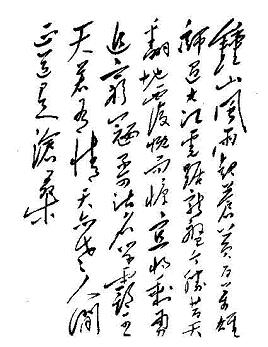 鍾山風雨起蒼黄百万雄
師過大江虎踞龍盤今勝昔天
翻地覆慨而慷宜将剩勇
追窮寇不可沽名学霸王
天若有情天亦老人間
正道是滄桑